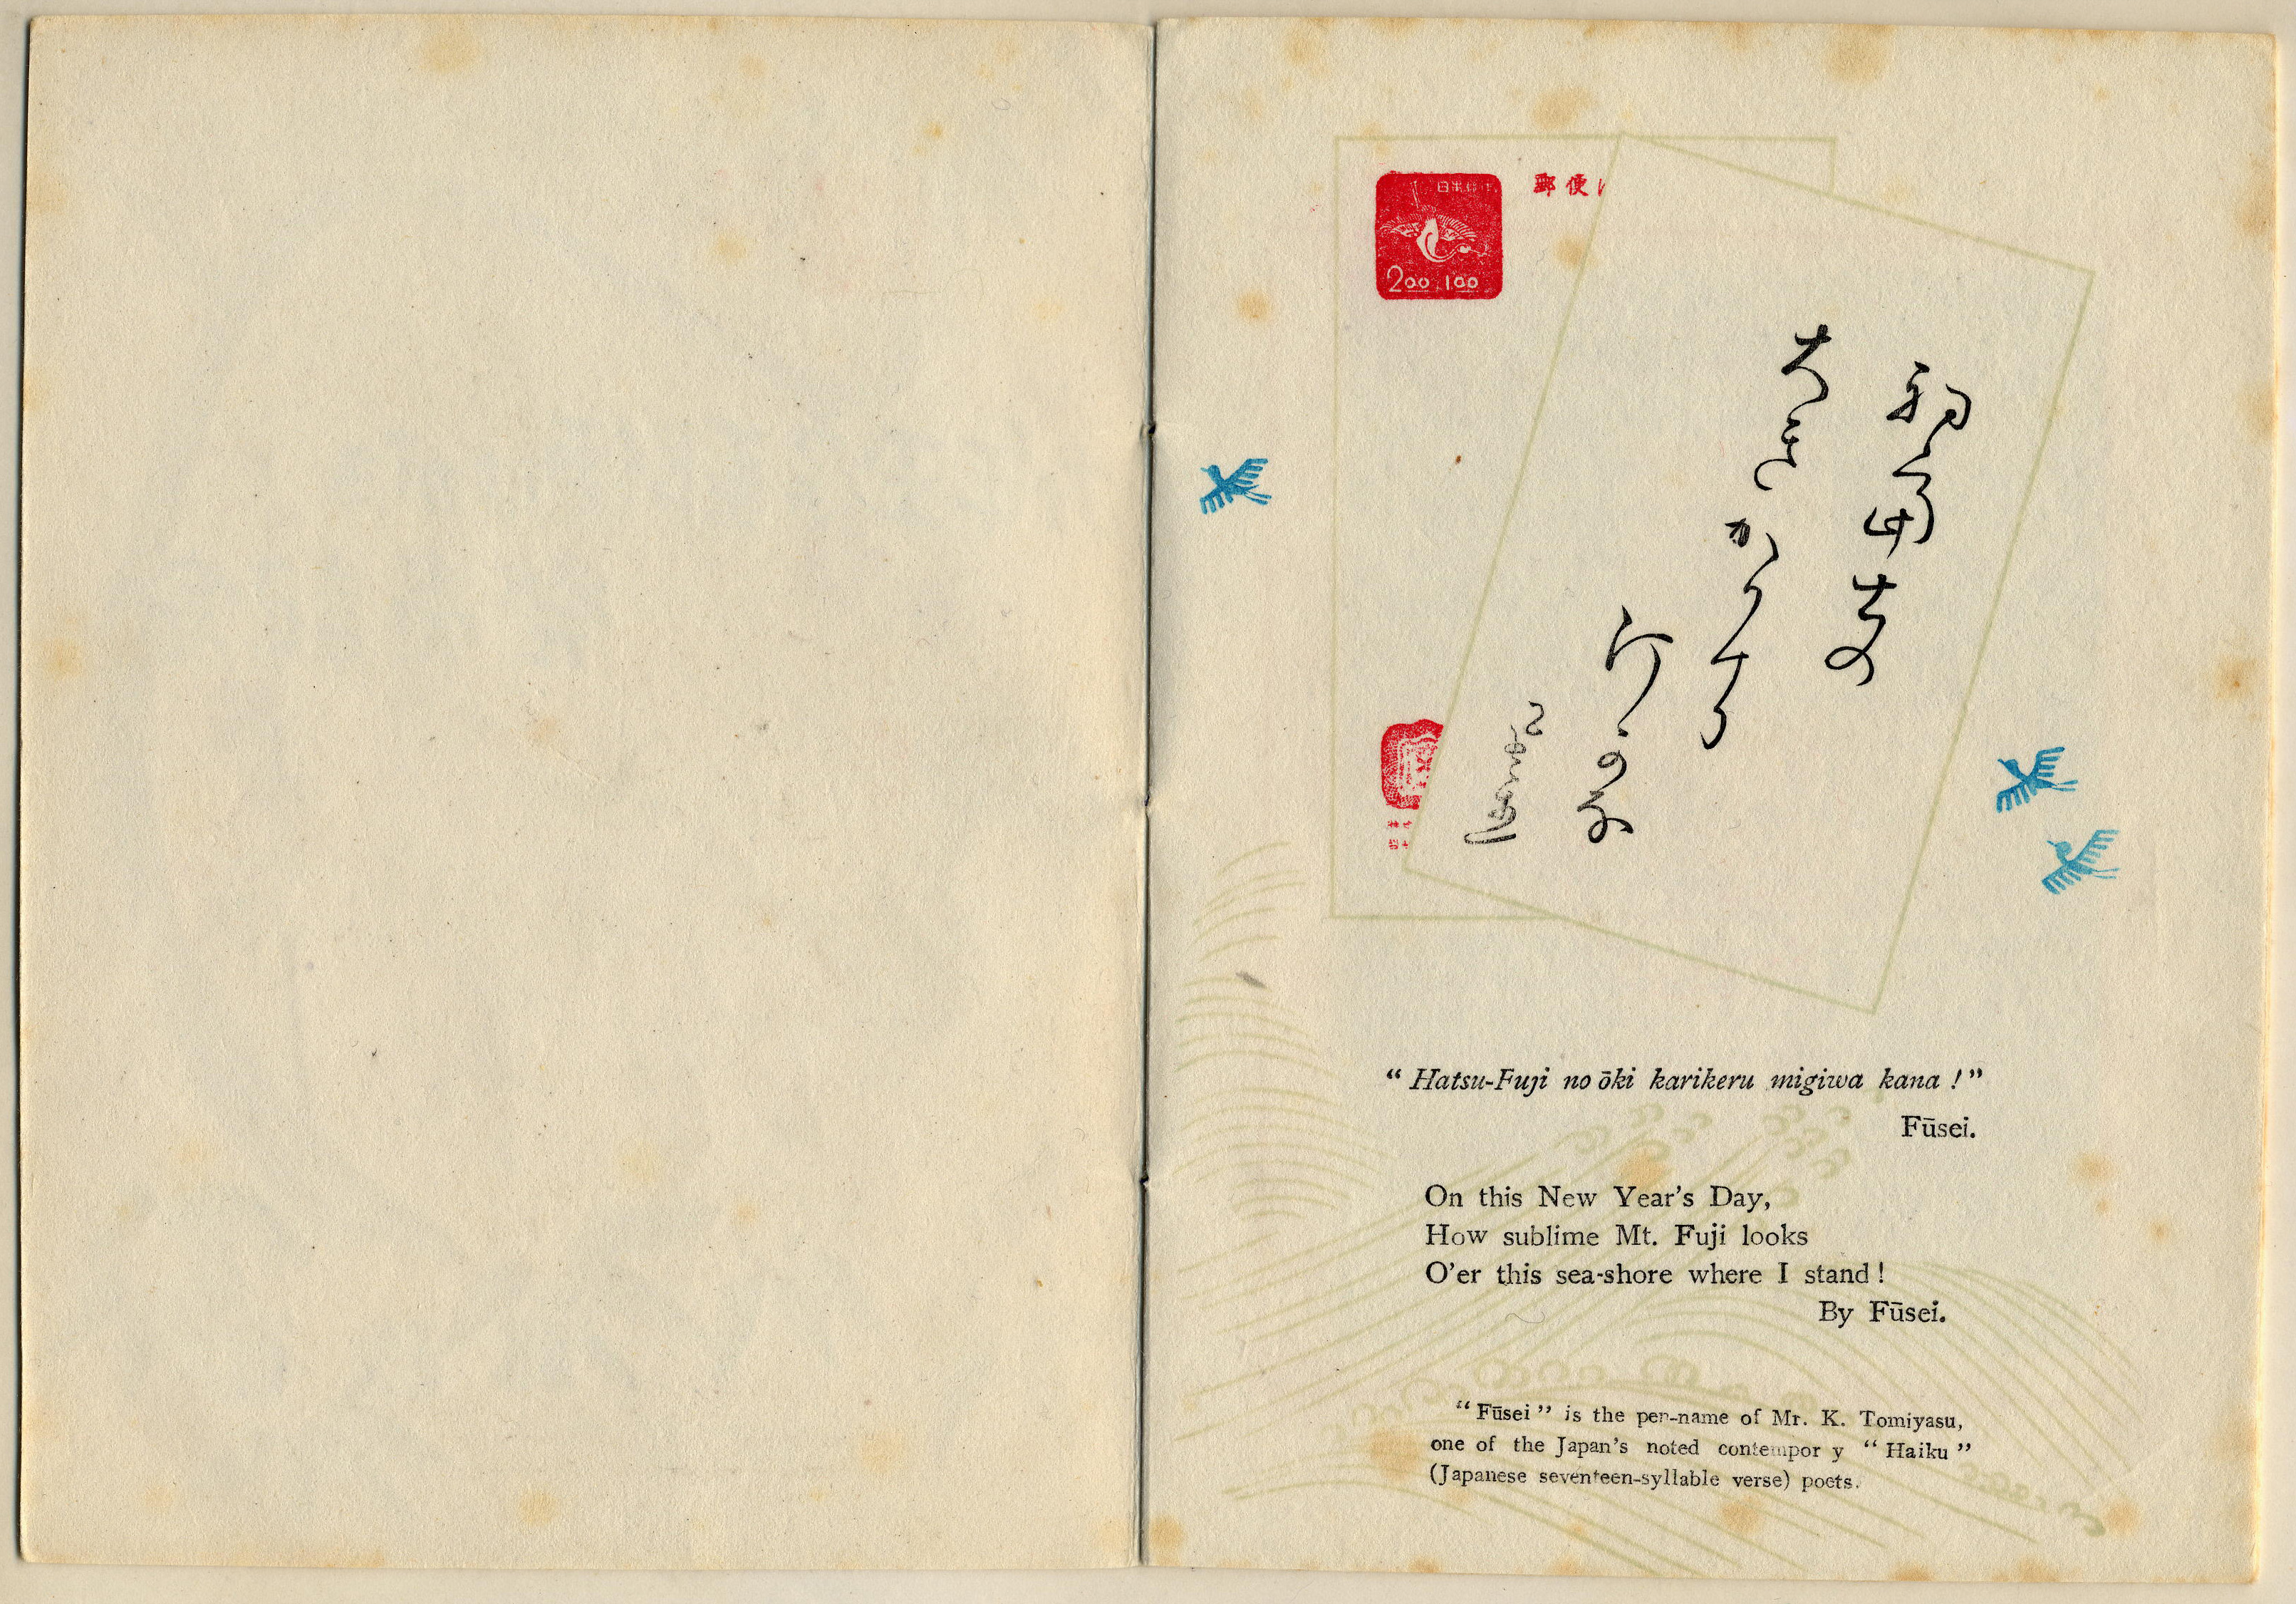 郵便
2.00 1.00
初富士の
大きかりける
汀かな
“ Hatsu-Fuji no ōki karikeru migiwa kana ! ”
Fūsei.
On this New Year’s Day,
How sublime Mt. Fuji looks
O’er this sea-shore where I stand !
By Fūsei.
“ Fūsei ” is the pen-name of Mr. K. Tomiyasu,
one of the Japan’s noted contempor y “ Haiku ”
(Japanese seventeen-syllable verse) poets.